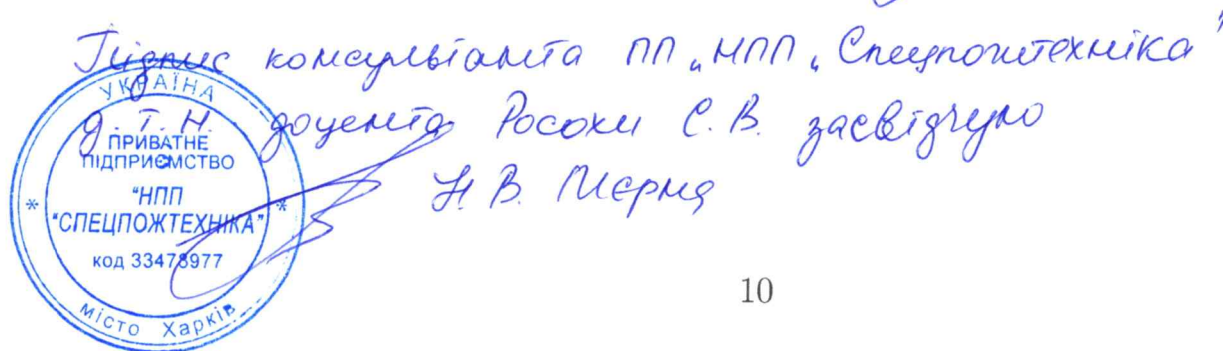 Підпис консультанта ПП „НПП „Спецпожтехніка"
д.т.н. доцента Росохи С.В. засвідчую
Н.В.
УКРАЇНА
ПРИВАТНЕ
ПІДПРИЄМСТВО
"НПП
"СПЕЦПОЖТЕХНІКА"
код 33478977
* місто Харків *
10